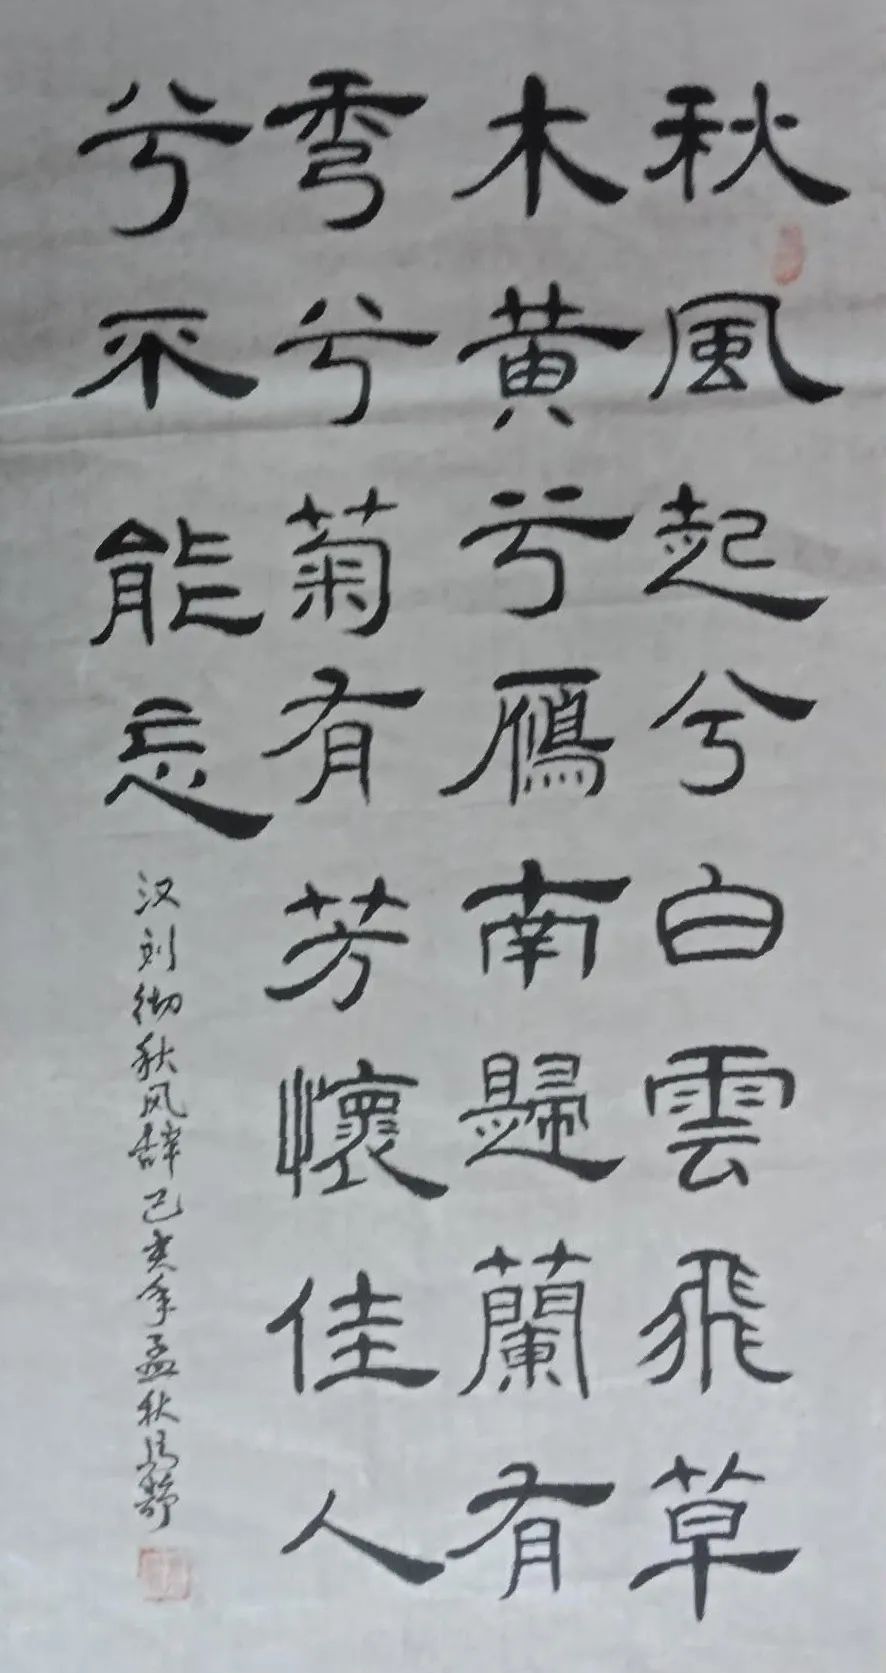 秋風起兮白雲飛草
木黄兮鴈南歸蘭有
秀兮菊有芳懷佳人
兮不能忘
汉刘彻秋风辞己亥年孟秋